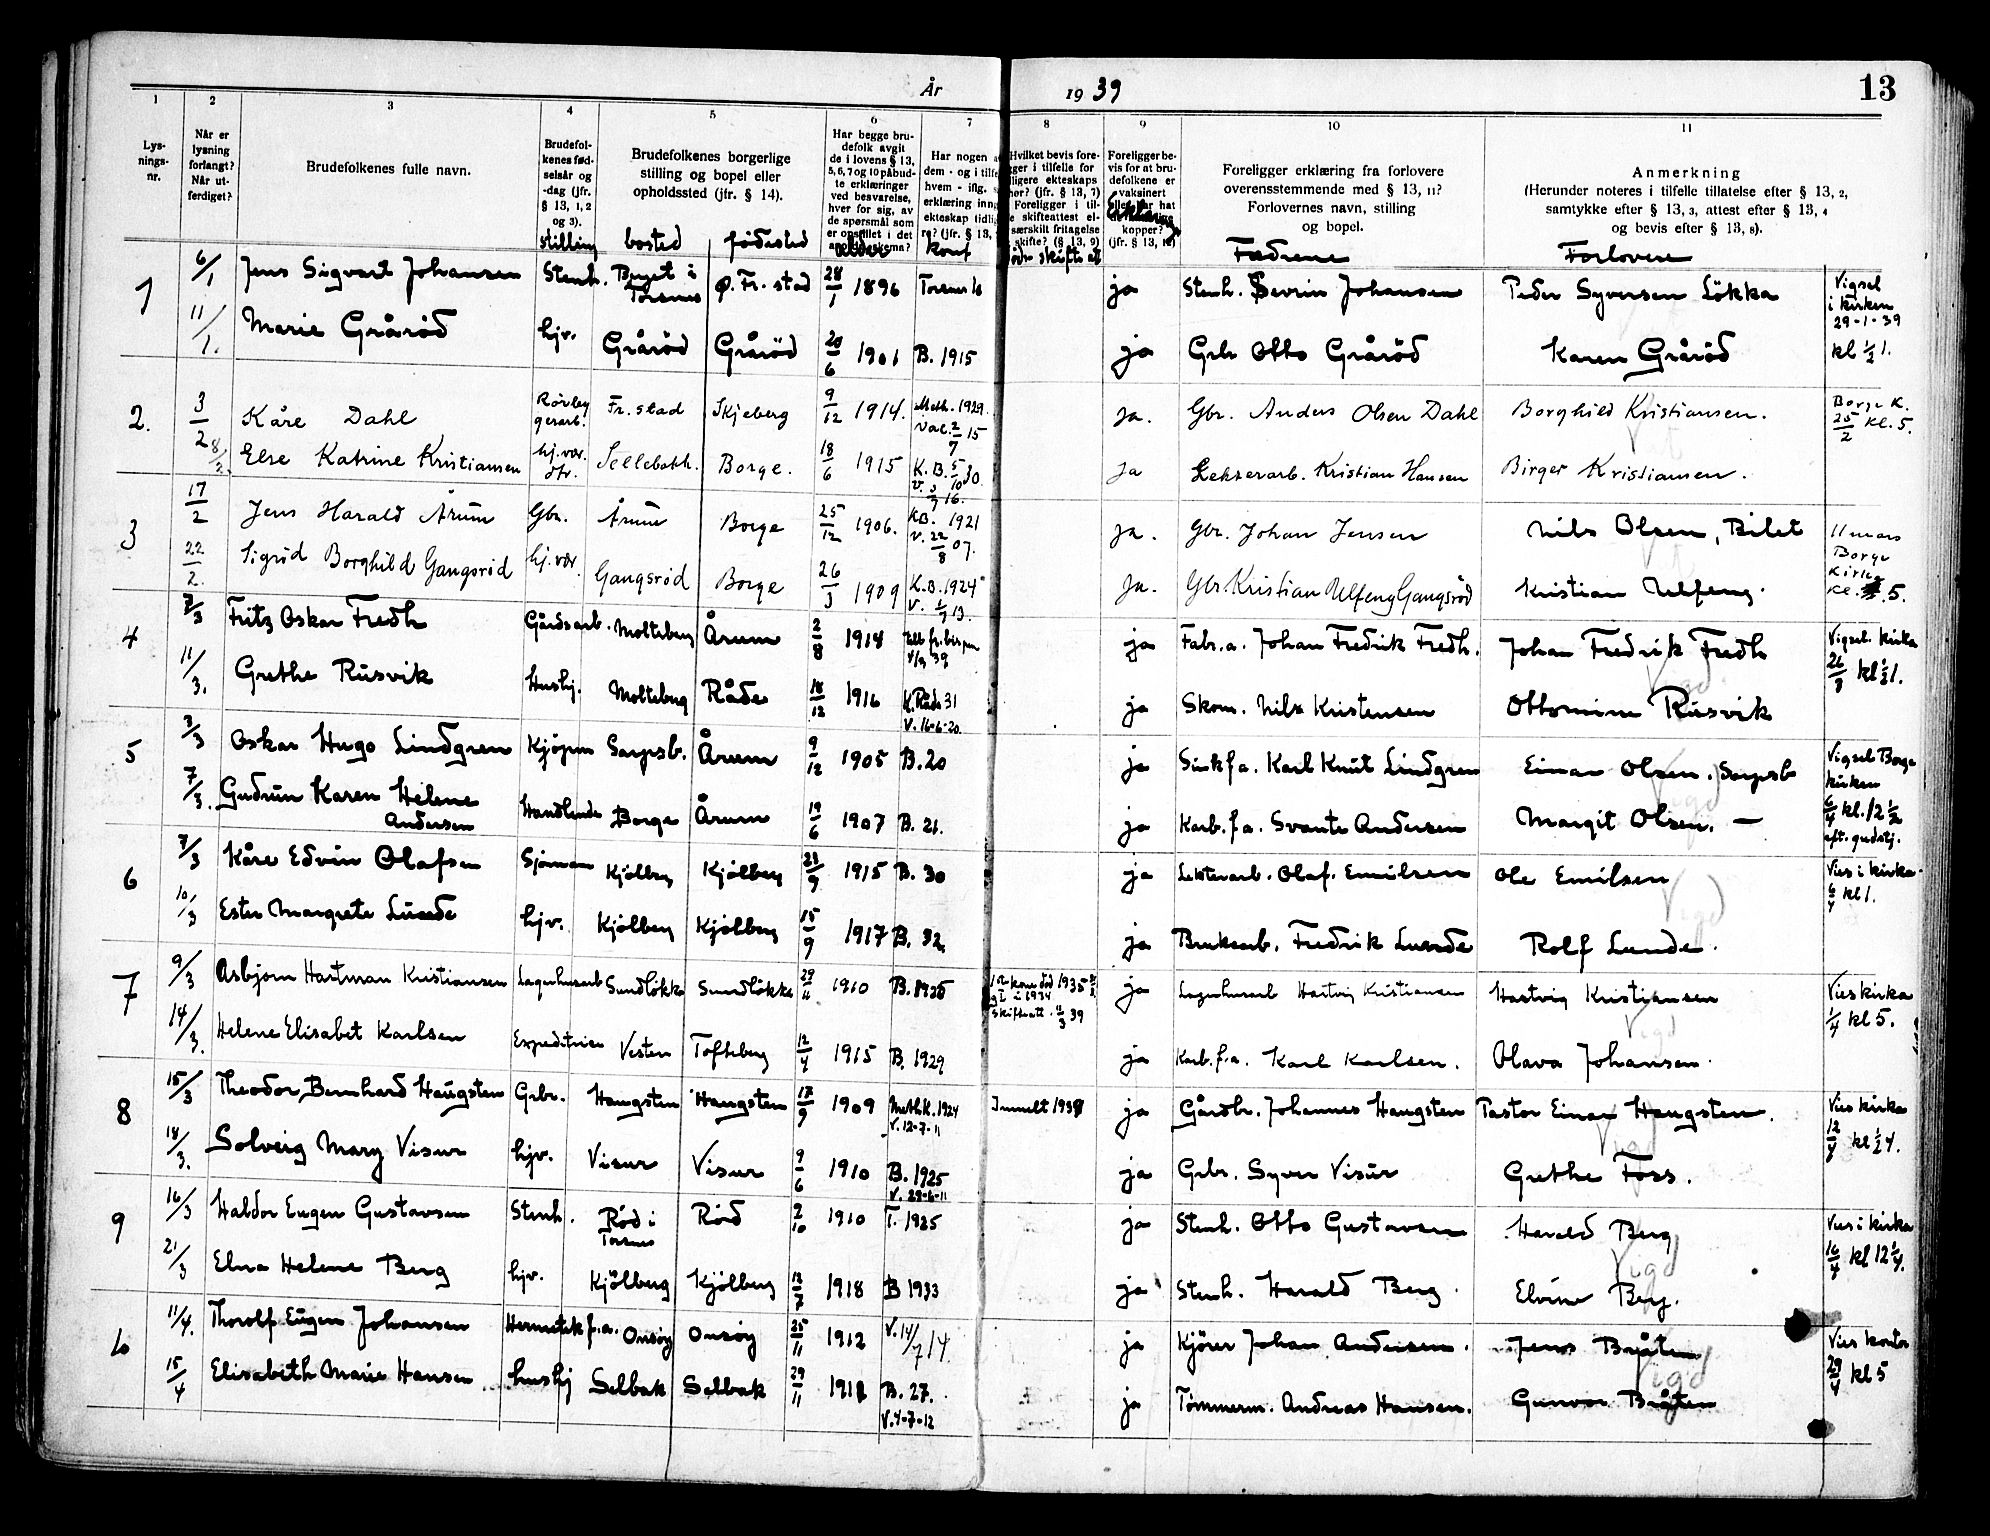 År 1939 13
1 2 3 4 5 6 7 8 9 10 11
Lys-
nings-
nr.
Når er
lysning
forlangt?
Når ut-
ferdiget?
Brudefolkenes fulle navn.
Brudefol-
kenes fød-
selsår og
-dag (jfr.
§ 13, 1, 2
og 3).
stilling
Brudefolkenes borgerlige
stilling og bopel eller
opholdssted (jfr. § 14).
bosted fødested
Har begge bru-
defolk avgit
de i lovens § 13,
5, 6, 7 og 10 påbud-
te erklæringer
ved besvarelse,
hver for sig, av
de spørsmål som
er opstillet i det
alder
Har nogen a
dem - og i tilfe
hvem - iflg. s
erklæring inng
ekteskap tidlig
re? (jfr. § 13,
konf
Hvilket bevis fore-
gger i tilfelle for
ligere ekteskaps
hør? (jfr. § 13, 7)
Foreligger i til-
e skifteattest el-
særskilt fritagelse
skifte? (§ 13, 9)
skifteat
Foreligger be-
vis for at bru-
defolkene er
vaksinert
eller har hat
kopper?
(jfr. § 13, 10)
Foreligger erklæring fra forlovere
overensstemmende med § 13, 11?
Forlovernes navn, stilling
og bopel.
Fædrene
Anmerkning
(Herunder noteres i tilfelle tillatelse efter § 13, 2,
samtykke efter § 13, 3, attest efter § 13, 4
og bevis efter § 13, 8).
Forlovere
1 6/1 Jens Sigvart Johansen Stenh. Buget i Torsnes Ø. Fr. stad 28/1 1896 Torsnes ja Stenh. Sevrin Johansen Peder Syversen Lökka Vigsel i kirken 29-1-39
11/1. Marie Grårød hjv. Grårød Grårød 20/6 1901 B. 1915 ja Grbr Otto Grårød Karen Grårød kl ½ 1.
2. 3/2 Kåre Dahl Rørleggerarb. Fr. stad Skjeberg 9/12 1914. Meth. 1929. Vac. 2/7 15 ja. Gbr. Anders Olsen Dahl Borghild Kristiansen. Borge K. 25/2 Kl. 5.
8/2. Else Katrine Kristiansen hj.vær. Sellebakk. Borge. 18/6 1915 K. B. 5/10 30. V. 3/7 16. ja Lekterarb. Kristian Hansen Birger Kristiansen.
3 17/2 Jens Harald Årum Gbr. Årum Borge 25/12 1906. KB. 1921 V. 22/8 07. ja. Gbr. Johan Jensen Nils Olsen, Bilet 11 mars Borge Kirke Kl. 5.
22/2. Sigrid Borghild Gangsrød hj. vær Gangsrød Borge 26/3 1909 K.B. 1924 V. 1/7 13. ja. Gbr. Kristian Ulfeng Gangsrød Kristian Ulfeng.
4 7/3 Fritz Oskar Fredh Gårdsarb. Molteberg Årum 2/8 1914 ja Fabr.a. Johan Fredrik Fredh. Johan Fredrik Fredh Vigsel. kirka 26/3 kl ½ 1.
11/3. Grethe Rusvik Hushj. Molteberg Råde 18/12 1916 K. Råde 31 V. 16-6-20. ja Skom. Nils Kristensen Ottomine Rusvik
5 3/3 Oskar Hugo Lindgren Kjøpm Sarpsb. Årum 9/12 1905 B. 20 ja Sinkf a. Karl Knut Lindgren Einar Olsen. Sarpsb Vigsel Borge kirken
7/3. Gudrun Karen Helene Andersen Handlende Borge Årum 19/6 1907 B. 21. ja Karb.f.a. Svante Andersen Margit Olsen. — 6/4 kl. 12 ½ eft. gudstj.
6 7/3 Kåre Edvin Olafsen Sjømann Kjølberg Kjølberg 21/9 1915 B. 30 ja Lekterarb. Olaf. Emilsen Ole Emilsen Vies i kirka 6/4 kl 1.
10/3 Ester Margrete Lunde hjv. Kjølberg Kjølberg 15/9 1917 B. 32. ja Bruksarb. Fredrik Lunde Rolf Lunde.
7 9/3 Asbjørn Hartman Kristiansen Lagerhusarb Sundløkka Sundløkka 29/11 1910 B. 1925 kone død 1935 i 1934 skifteatt. 11/3 39 ja Lagerhusarb Hartvig Kristiansen Hartvig Kristiansen Vies kirka 1/4 kl 5.
14/3. Helene Elisabet Karlsen Expeditrise Vesten Tofteberg 12/4 1915 B. 1929 ja Karb.f.a. Karl Karlsen. Olava Johansen.
8 15/3 Theodor Bernhard Haugsten Grbr. Haugsten Haugsten 17/9 1909 Meth.K. 1924 V. 12-7-11 Innmelt 1939 ja Gårdbr. Johannes Haugsten Pastor Einar Haugsten. Vies kirka 12/4 kl ½ 4.
18/3. Solveig Mary Visur hjv. Visur Visur 9/6 1910 B. 1925 V. 29-6-11 ja Grbr. Syver Visur Grethe Foss.
9 16/3 Haldor Eugen Gustavsen Stenh. Rød i Torsnes Rød 2/10 1910 T. 1925 ja Stenh. Otto Gustavsen Harald Berg Vies i kirka 16/4 kl 12 ¼.
21/3 Elna Helene Berg hjv. Kjølberg Kjølberg 13/7 1918 B 1933 ja Stenh. Harald Berg. Elvine Berg.
10 11/4. Thorolf Eugen Johansen Hermetikf.a. Onsøy Onsøy 25/11 1912 V. 14/7 14. ja Kjører Johan Andersen. Jens Bråten Vies kontor 29/4 kl 5
15/4 Elisabeth Marie Hansen hushj Selbak Selbak 29/11 1911 B. 27. V. 4-7-12 ja Tømmerm. Andreas Hansen. Gunvor Bråten